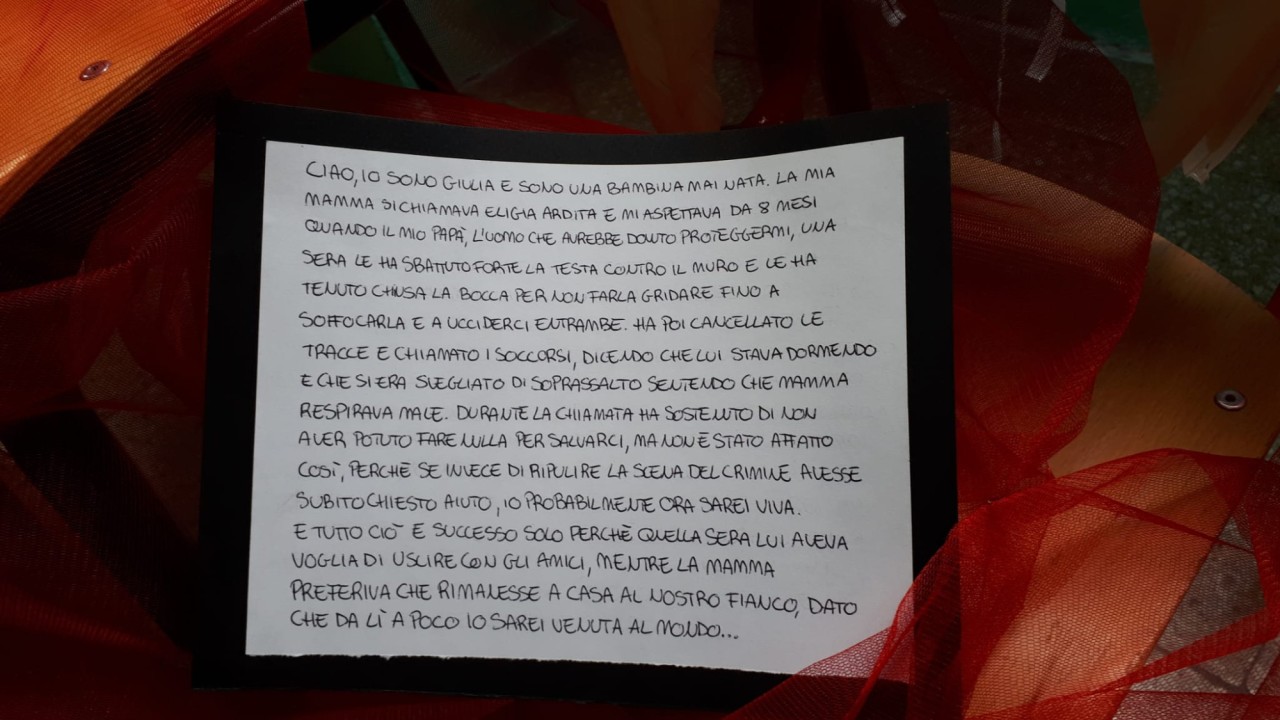 CIAO, IO SONO GIULIA E SONO UNA BAMBINA MAI NATA. LA MIA
MAMMA SI CHIAMAVA ELIGIA ARDITA E MI ASPETTAVA DA 8 MESI
QUANDO IL MIO PAPÀ, L'UOMO CHE AVREBBE DOVUTO PROTEGGERMI, UNA
SERA LE HA SBATTUTO FORTE LA TESTA CONTRO IL MURO E LE HA
TENUTO CHIUSA LA BOCCA PER NON FARLA GRIDARE FINO A
SOFFOCARLA E A UCCIDERCI ENTRAMBE. HA POI CANCELLATO LE
TRACCE E CHIAMATO I SOCCORSI, DICENDO CHE LUI STAVA DORMENDO
E CHE SI ERA SVEGLIATO DI SOPRASSALTO SENTENDO CHE MAMMA
RESPIRAVA MALE. DURANTE LA CHIAMATA HA SOSTENUTO DI NON
AVER POTUTO FARE NULLA PER SALVARCI, MA NON È STATO AFFATTO
COSÌ, PERCHÈ SE INVECE DI RIPULIRE LA SCENA DEL CRIMINE AVESSE
SUBITO CHIESTO AIUTO, IO PROBABILMENTE ORA SAREI VIVA.
E TUTTO CIÒ E SUCCESSO SOLO PERCHÈ QUELLA SERA LUI AVEVA
VOGLIA DI USCIRE CON GLI AMICI, MENTRE LA MAMMA
PREFERIVA CHE RIMANESSE A CASA AL NOSTRO FIANCO, DATO
CHE DA LÌ A POCO IO SAREI VENUTA AL MONDO...